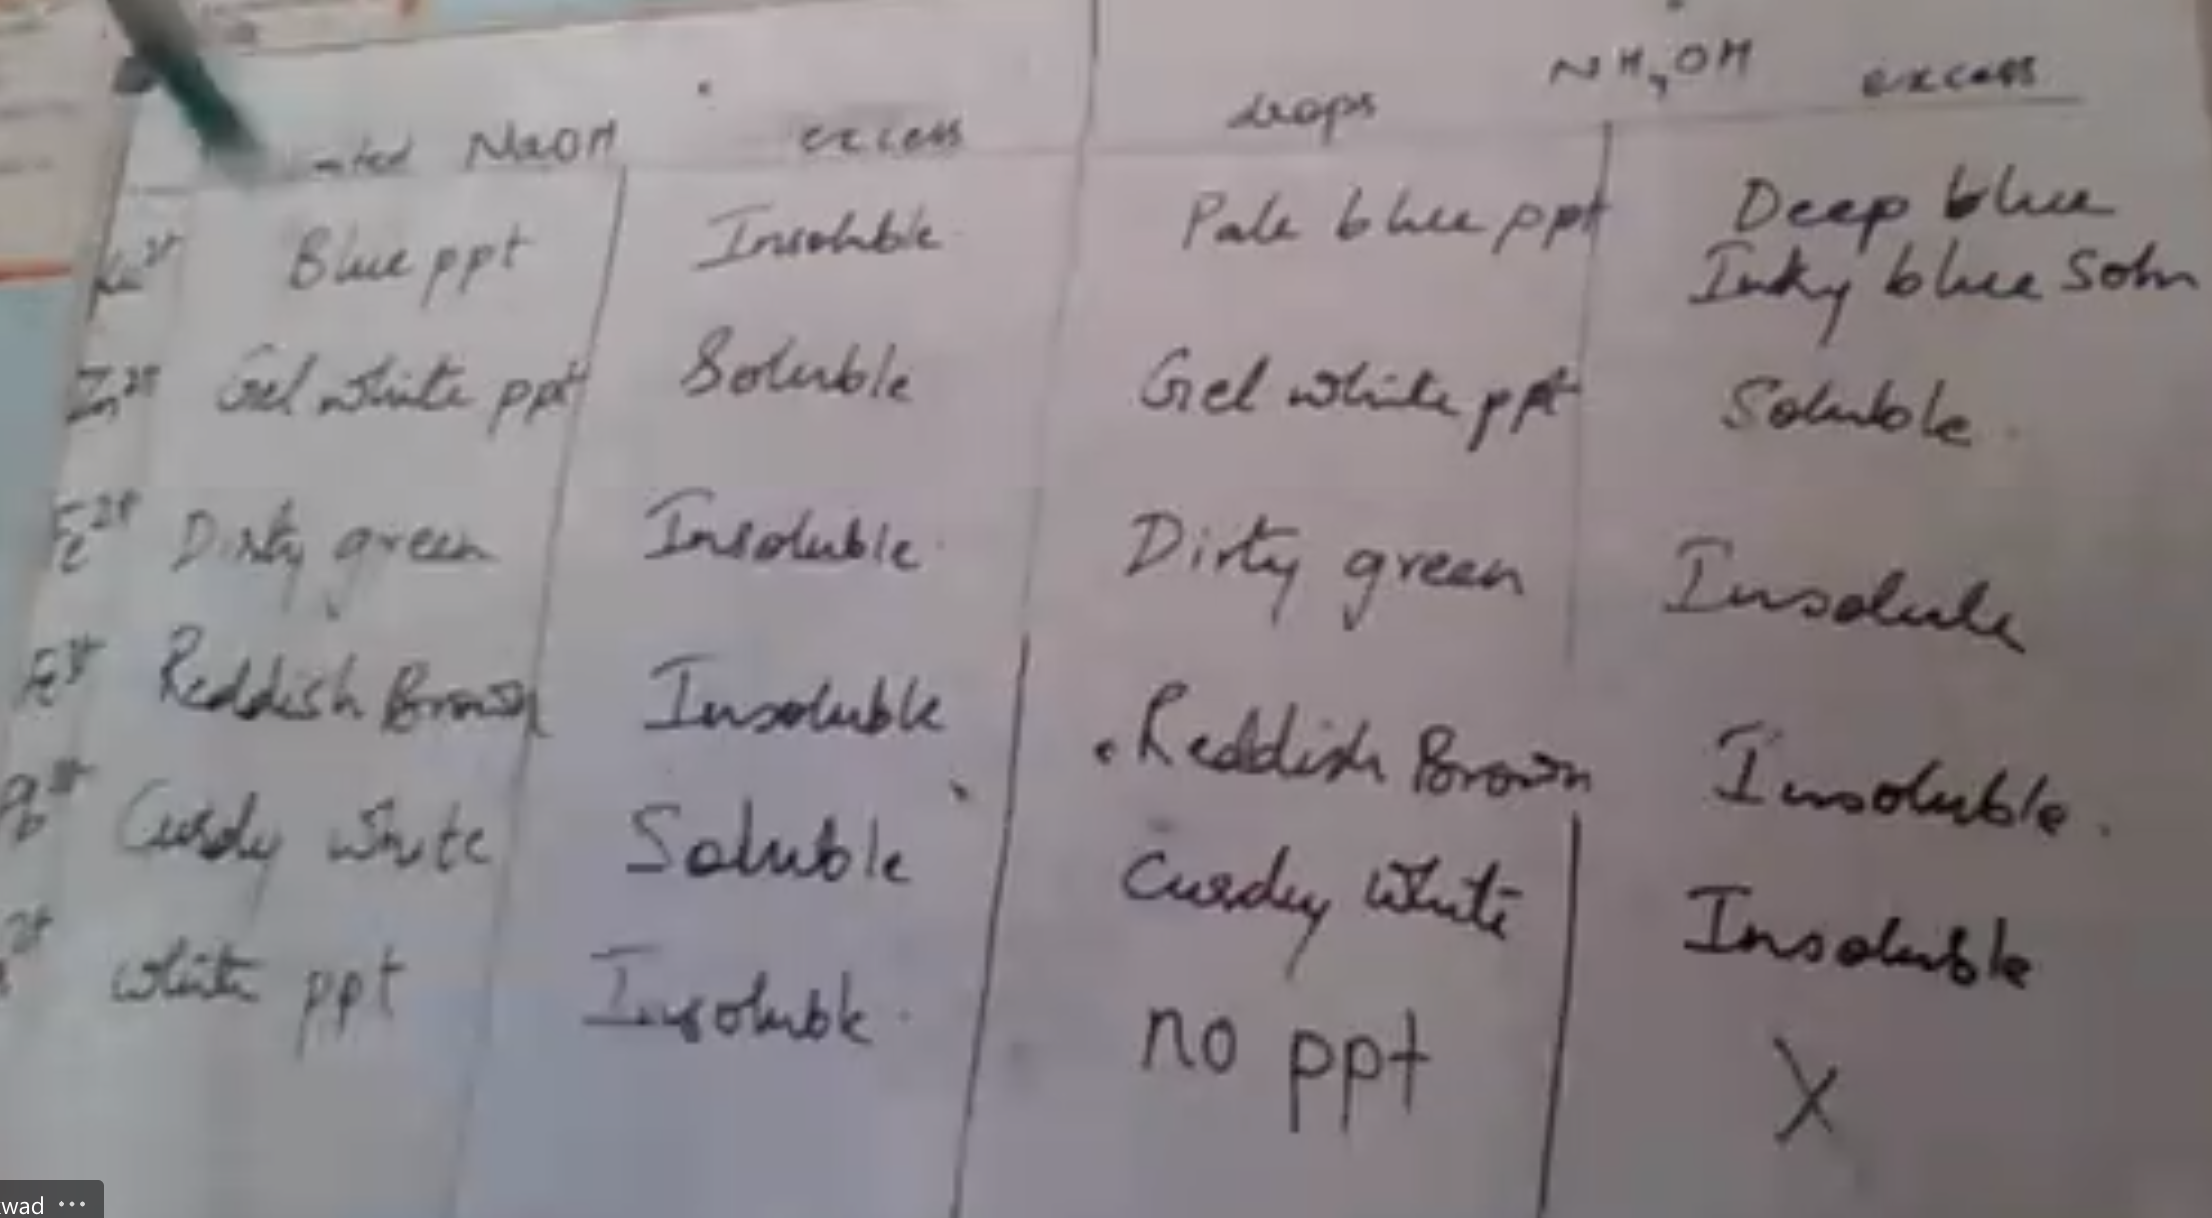 NaOH excess drops NH4OH excess
Blue ppt Insoluble Pale blue ppt Deep blue
Inky blue Soln
Zn2+ Gel white ppt Soluble Gel white ppt Soluble.
Fe2+ Dirty green Insoluble Dirty green Insoluble
Fe3+ Reddish Brown Insoluble Reddish Brown Insoluble.
Pb2+ Curdy white Soluble Curdy White Insoluble
2+ white ppt Insoluble. no ppt X
wad ...